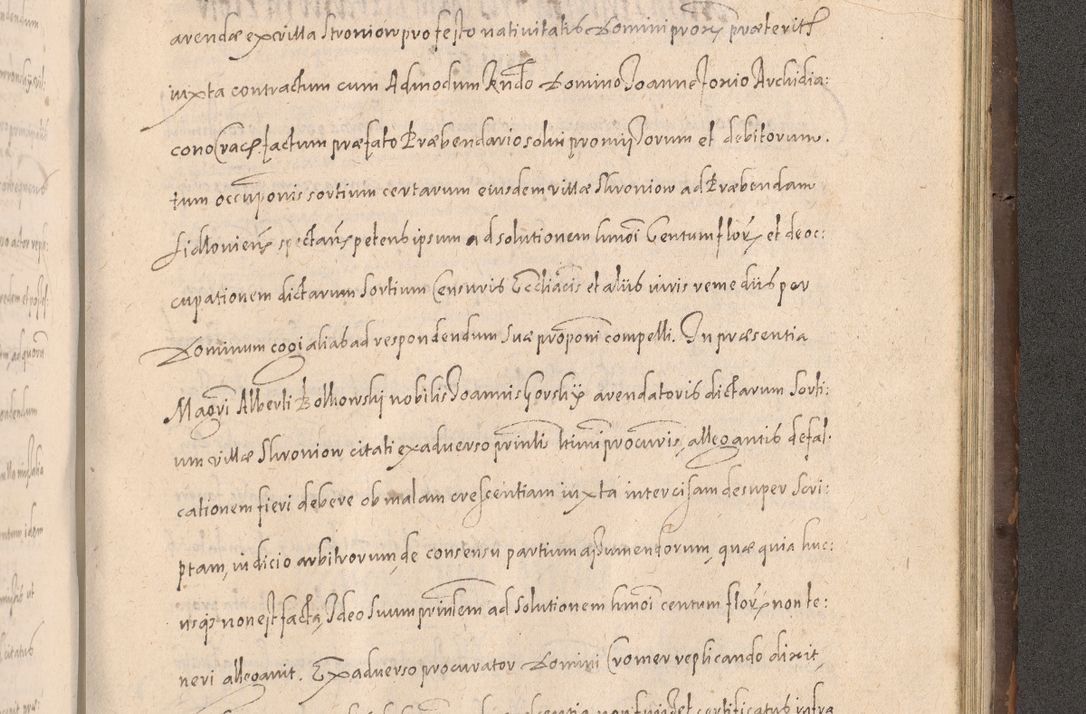 arendæ ex villa Stroniow pro festo nativitatis Domini prox præterit
iuxta contractum cum Admodum Rndo Domino Joanne Fonio Archidia:
cono Crac. factum præfato Præbendario solui promissorum et debitorum.
tum occuponis sortium certarum eiusdem villæ Stroniow ad Præbendam
spectan petens ipsum ad solutionem hmoi Centum flor et de oc:
cupationem dictarum Sortium Censuris Eccliacis et aliis iuris remediis per
Dominum cogi alias ad respondendum suæ proponi compelli. In præsentia
Magri Alberti Bolkowski nobilis Joannis Gorskij arendatoris dictarum Sorti:
um villæ Stroniow citati ex adverso prinlis ltimi procuris, allegantis defal:
cationem fieri debere ob malam crescentiam iuxta intercisam desuper Scri:
ptam, iudicio arbitrorum, de consensu partium assumendorum, quæ quia huc:
usqs non est facta, Ideo suum prinlem ad solutionem hmoi centum flor non te:
neri allegavit. Ex adverso procurator Domini Cromer replicando dixit,